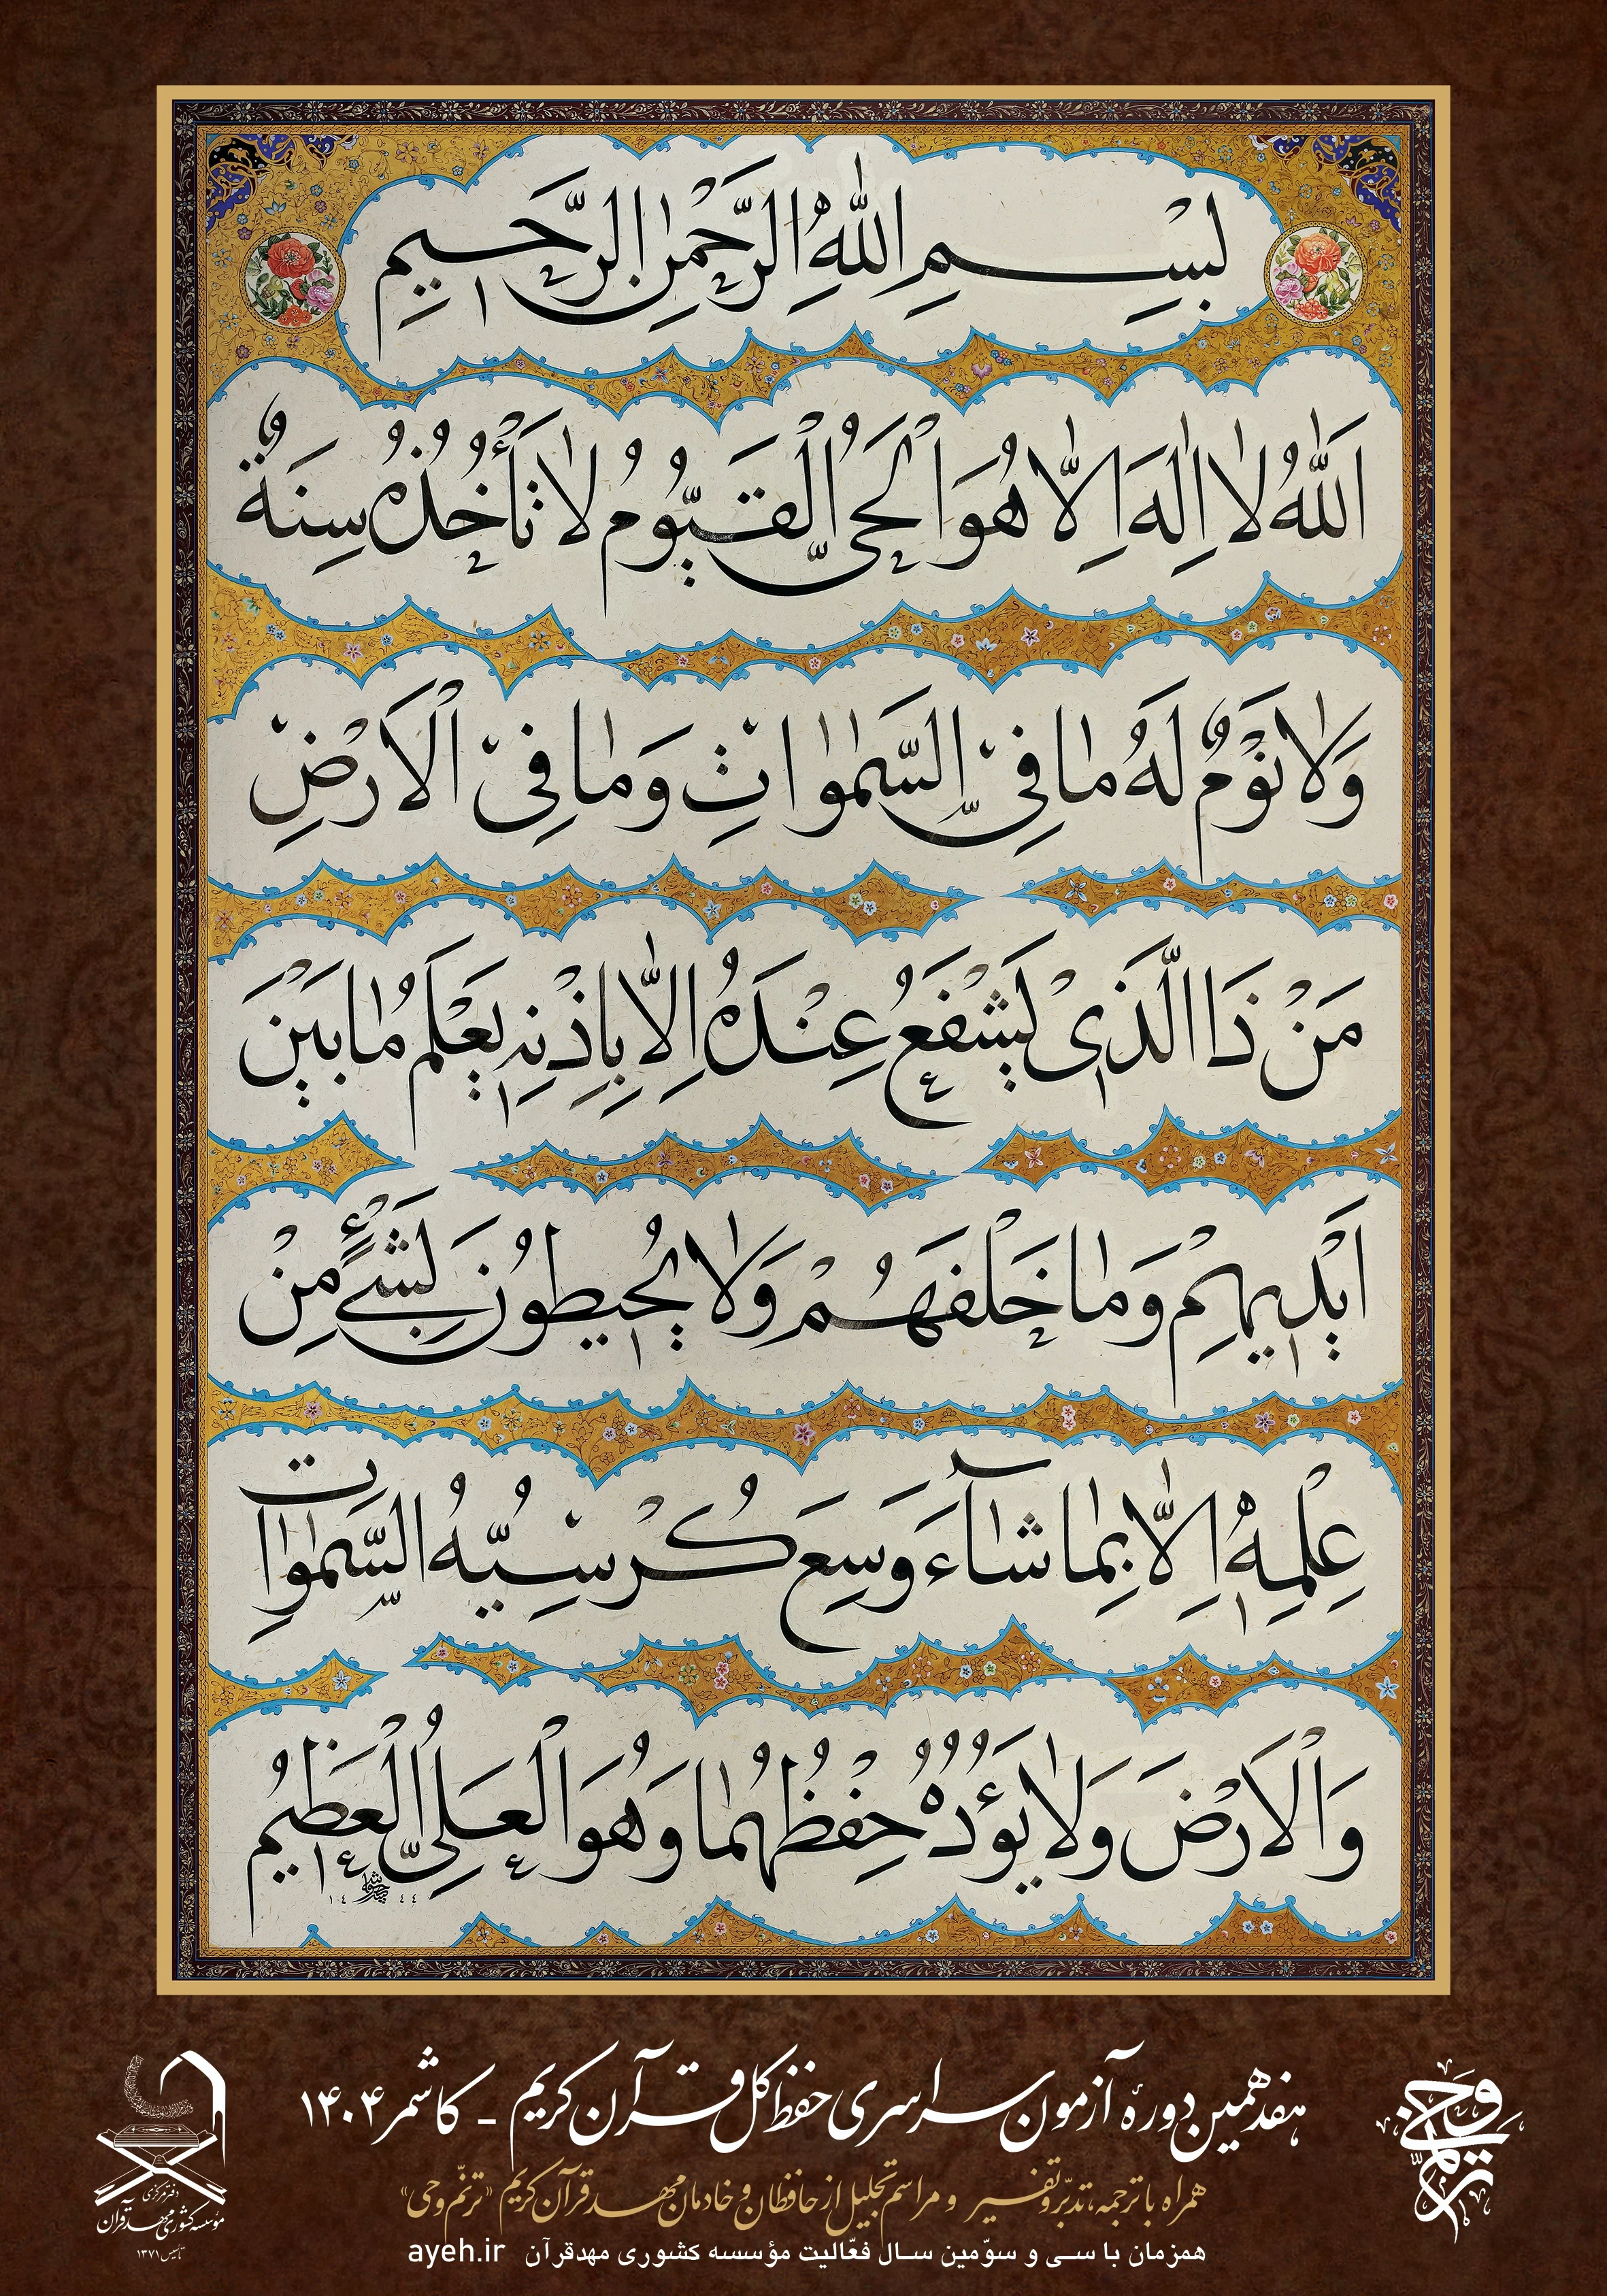 بِسْمِ اللّٰهِ الرَّحْمٰنِ الرَّحيمِ
اَللّٰهُ لٰا اِلٰهَ اِلّٰا هُوَ الْحَیُّ الْقَيُّومُ لٰا تَأْخُذُهُ سِنَةٌ
وَلٰا نَوْمٌ لَهُ مٰا فِی السَّمٰوٰاتِ وَمٰا فِی الْاَرْضِ
مَنْ ذَا الَّذی يَشْفَعُ عِنْدَهُ اِلّٰا بِاِذْنِهِ يَعْلَمُ مٰا بَيْنَ
اَيْديهِمْ وَمٰا خَلْفَهُمْ وَلٰا يُحيطُونَ بِشَیْءٍ مِنْ
عِلْمِهِ اِلّٰا بِمٰا شٰاءَ وَسِعَ كُرْسِيُّهُ السَّمٰوٰاتِ
وَالْاَرْضَ وَلٰا يَؤُدُهُ حِفْظُهُمٰا وَهُوَ الْعَلِیُّ الْعَظيمُ
هفدهمین دورهٔ آزمون سراسری حفظ کل قرآن کریم - کاشمر ۱۴۰۴
همراه با ترجمه، تدبّر و تفسیر و مراسم تجلیل از حافظان و خادمان مهد قرآن کریم «ترنّم وحی»
همزمان با سی و سوّمین سال فعّالیت مؤسسه کشوری مهدقرآن ayeh.ir
ترنّم وحی
دفتر مرکزی
مؤسسه کشوری مهد قرآن
تأسیس ۱۳۷۱